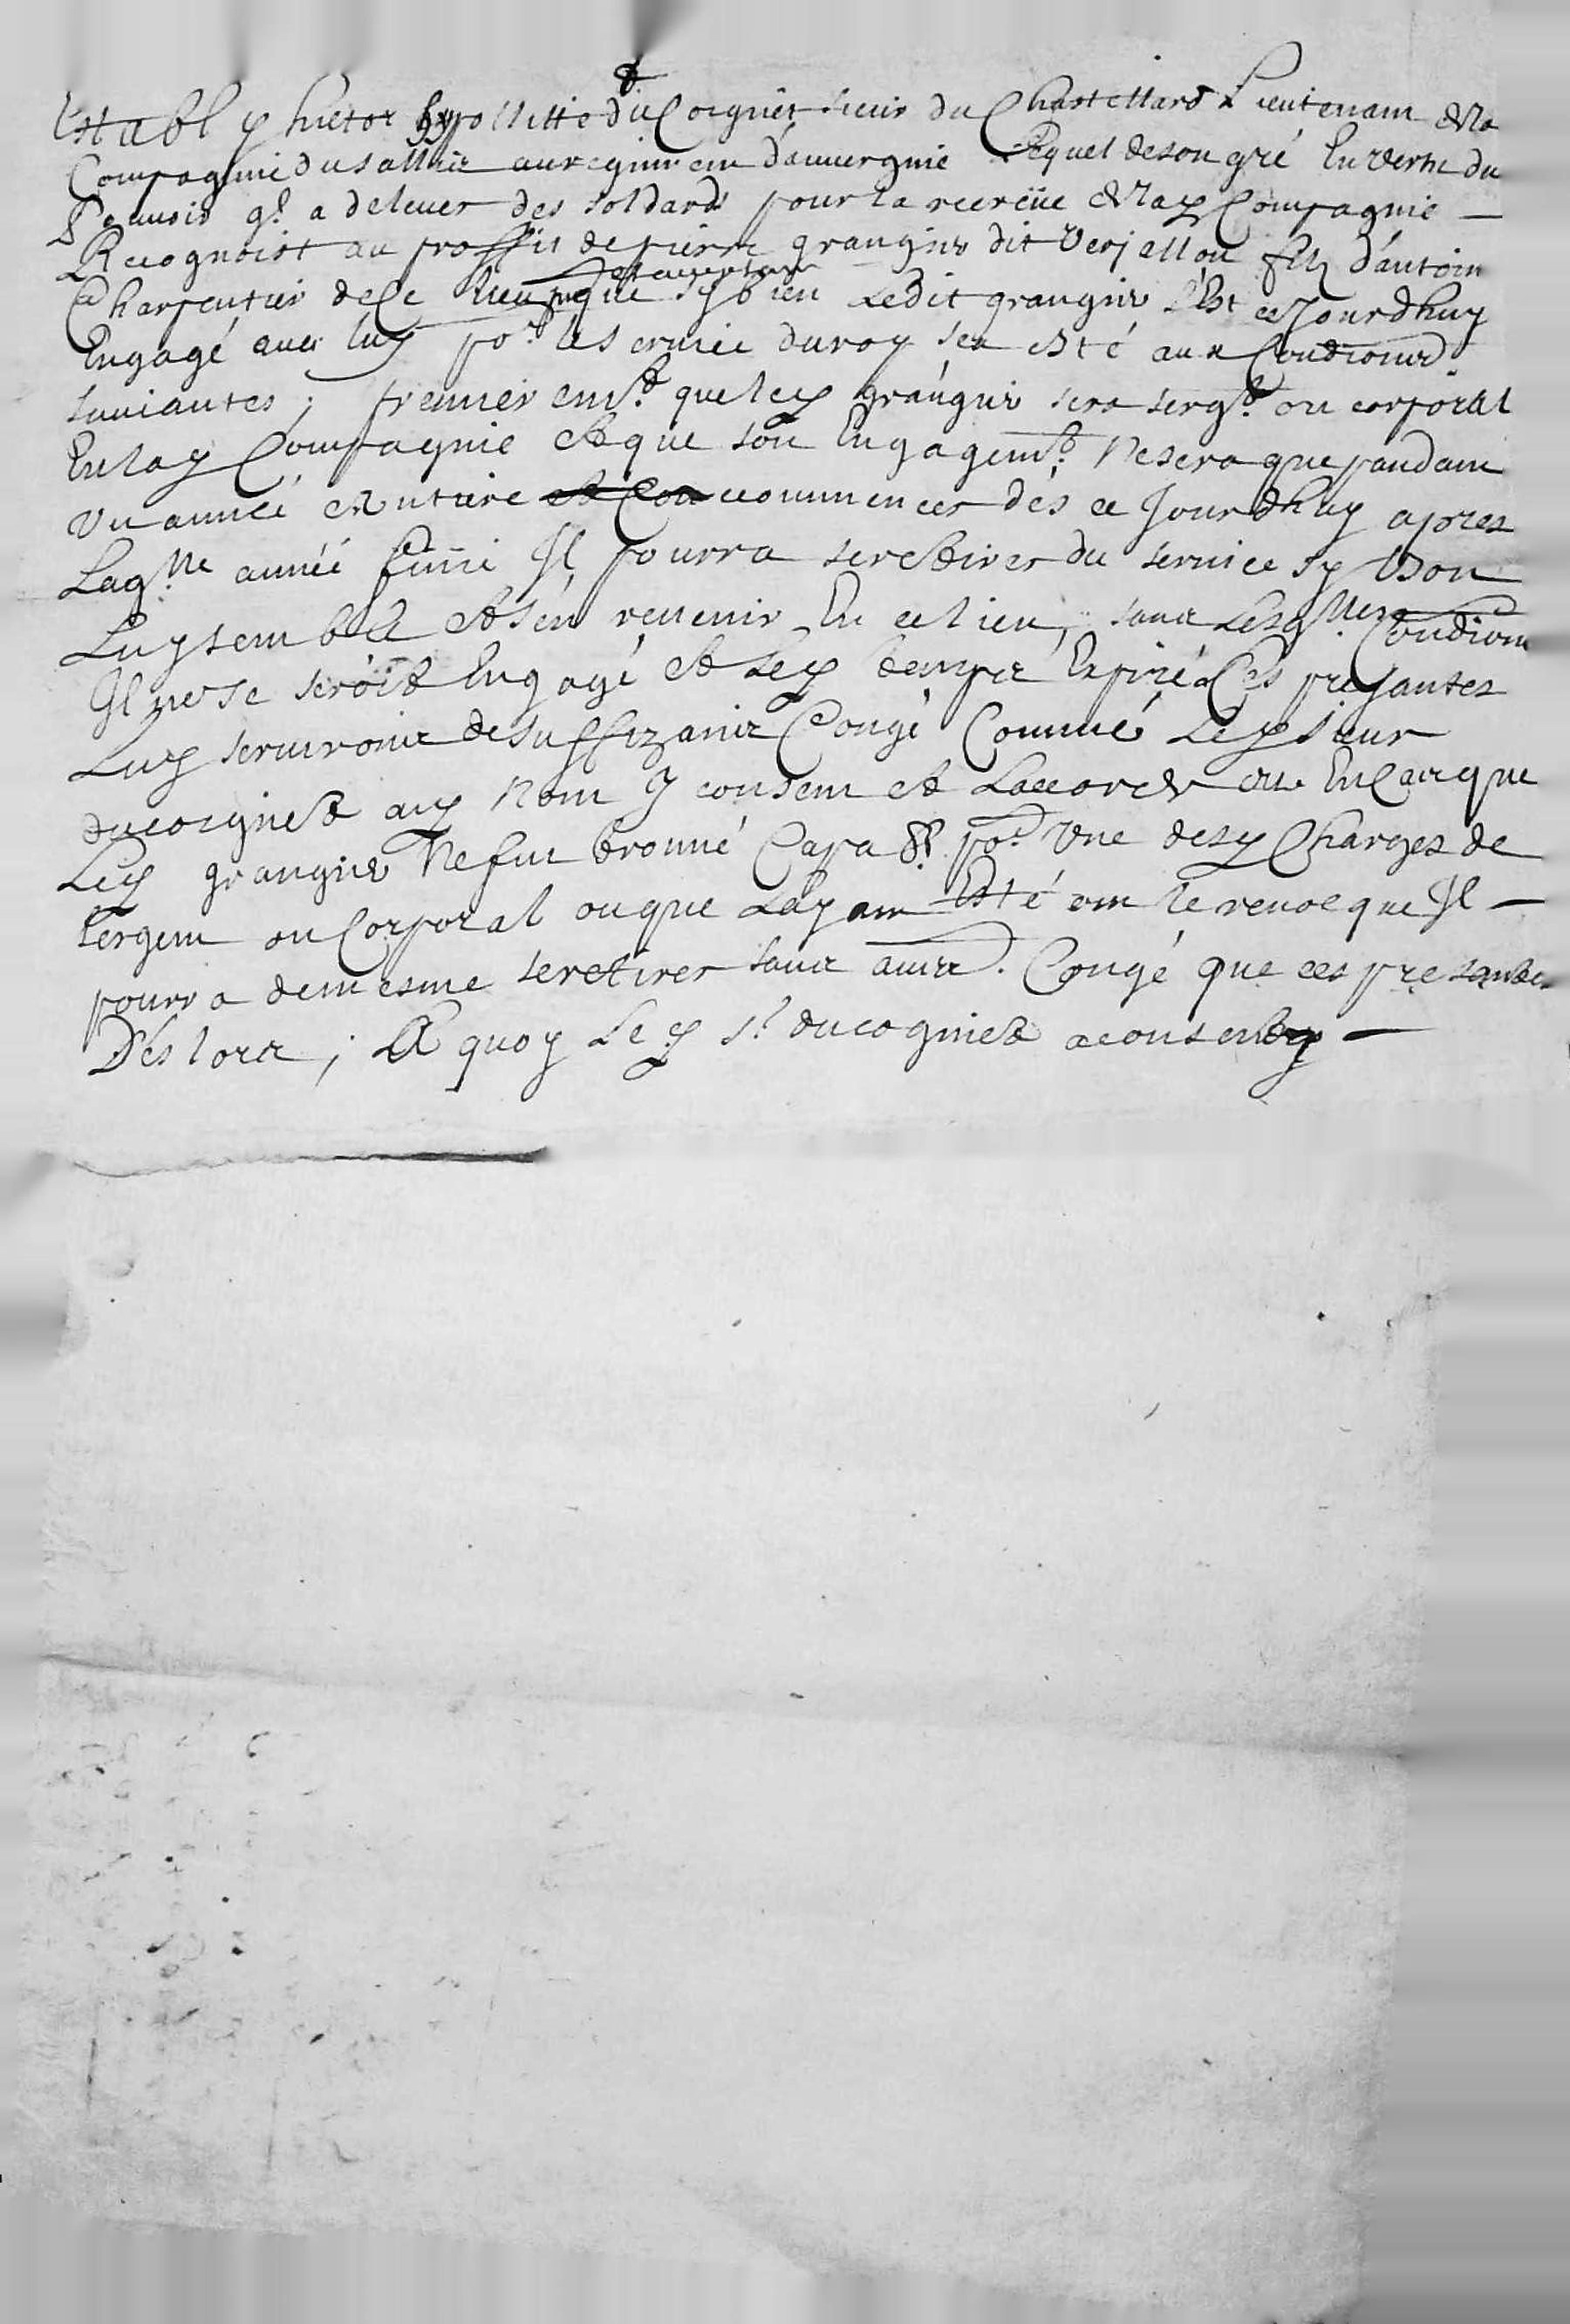 Establ y hictor hypollitte du Coignet sieur du Chastellard Lieutenam de la
Compagnie du sallier au regimem d'auuergnie Lequel de son gré En vertu du
Pouuoir ql a de leuer des soldards pour la recreüe de lay Compagnie
Recognoist au proffit de pierre grangier dit Verjellou filz d'antoin
Charpentier de Ce lieu que sy bien Ledit grangier s'Est ce Jourdhuy
Engagé auec luy por le seruice du roy s'ea esté aux Condiōns
suiuantes ; premier emt. que ley grangier sera sergt. ou corporal
En lay Compagnie Et que son Engagemt. Ne sera que pandam
Vn année Entiere et Con commencer dés ce Jourdhuy apres
Laqlle année finnie Jl pourra se rettirer du seruice sy bon
Luy semble Et s'en reuenir En ce lieu, sans Lesqlles Condiōns
Jl ne se seroit Engagé Et ley temps Expiré Ces presantes
Luy seruirons de suffizans Congé Comme Ley sieur
ducoignet ay Nom J consem et Laccorde Et En Cas que
Ley grangier Ne fut trouué Capable por Vne desy Charges de
sergem ou Corporal ou que Layam Esté om le reuoque Jl
pourra de mesme se retirer sans autre Congé que ces presantes
Dés lors ; A quoy Ley sr ducogniet a consenty